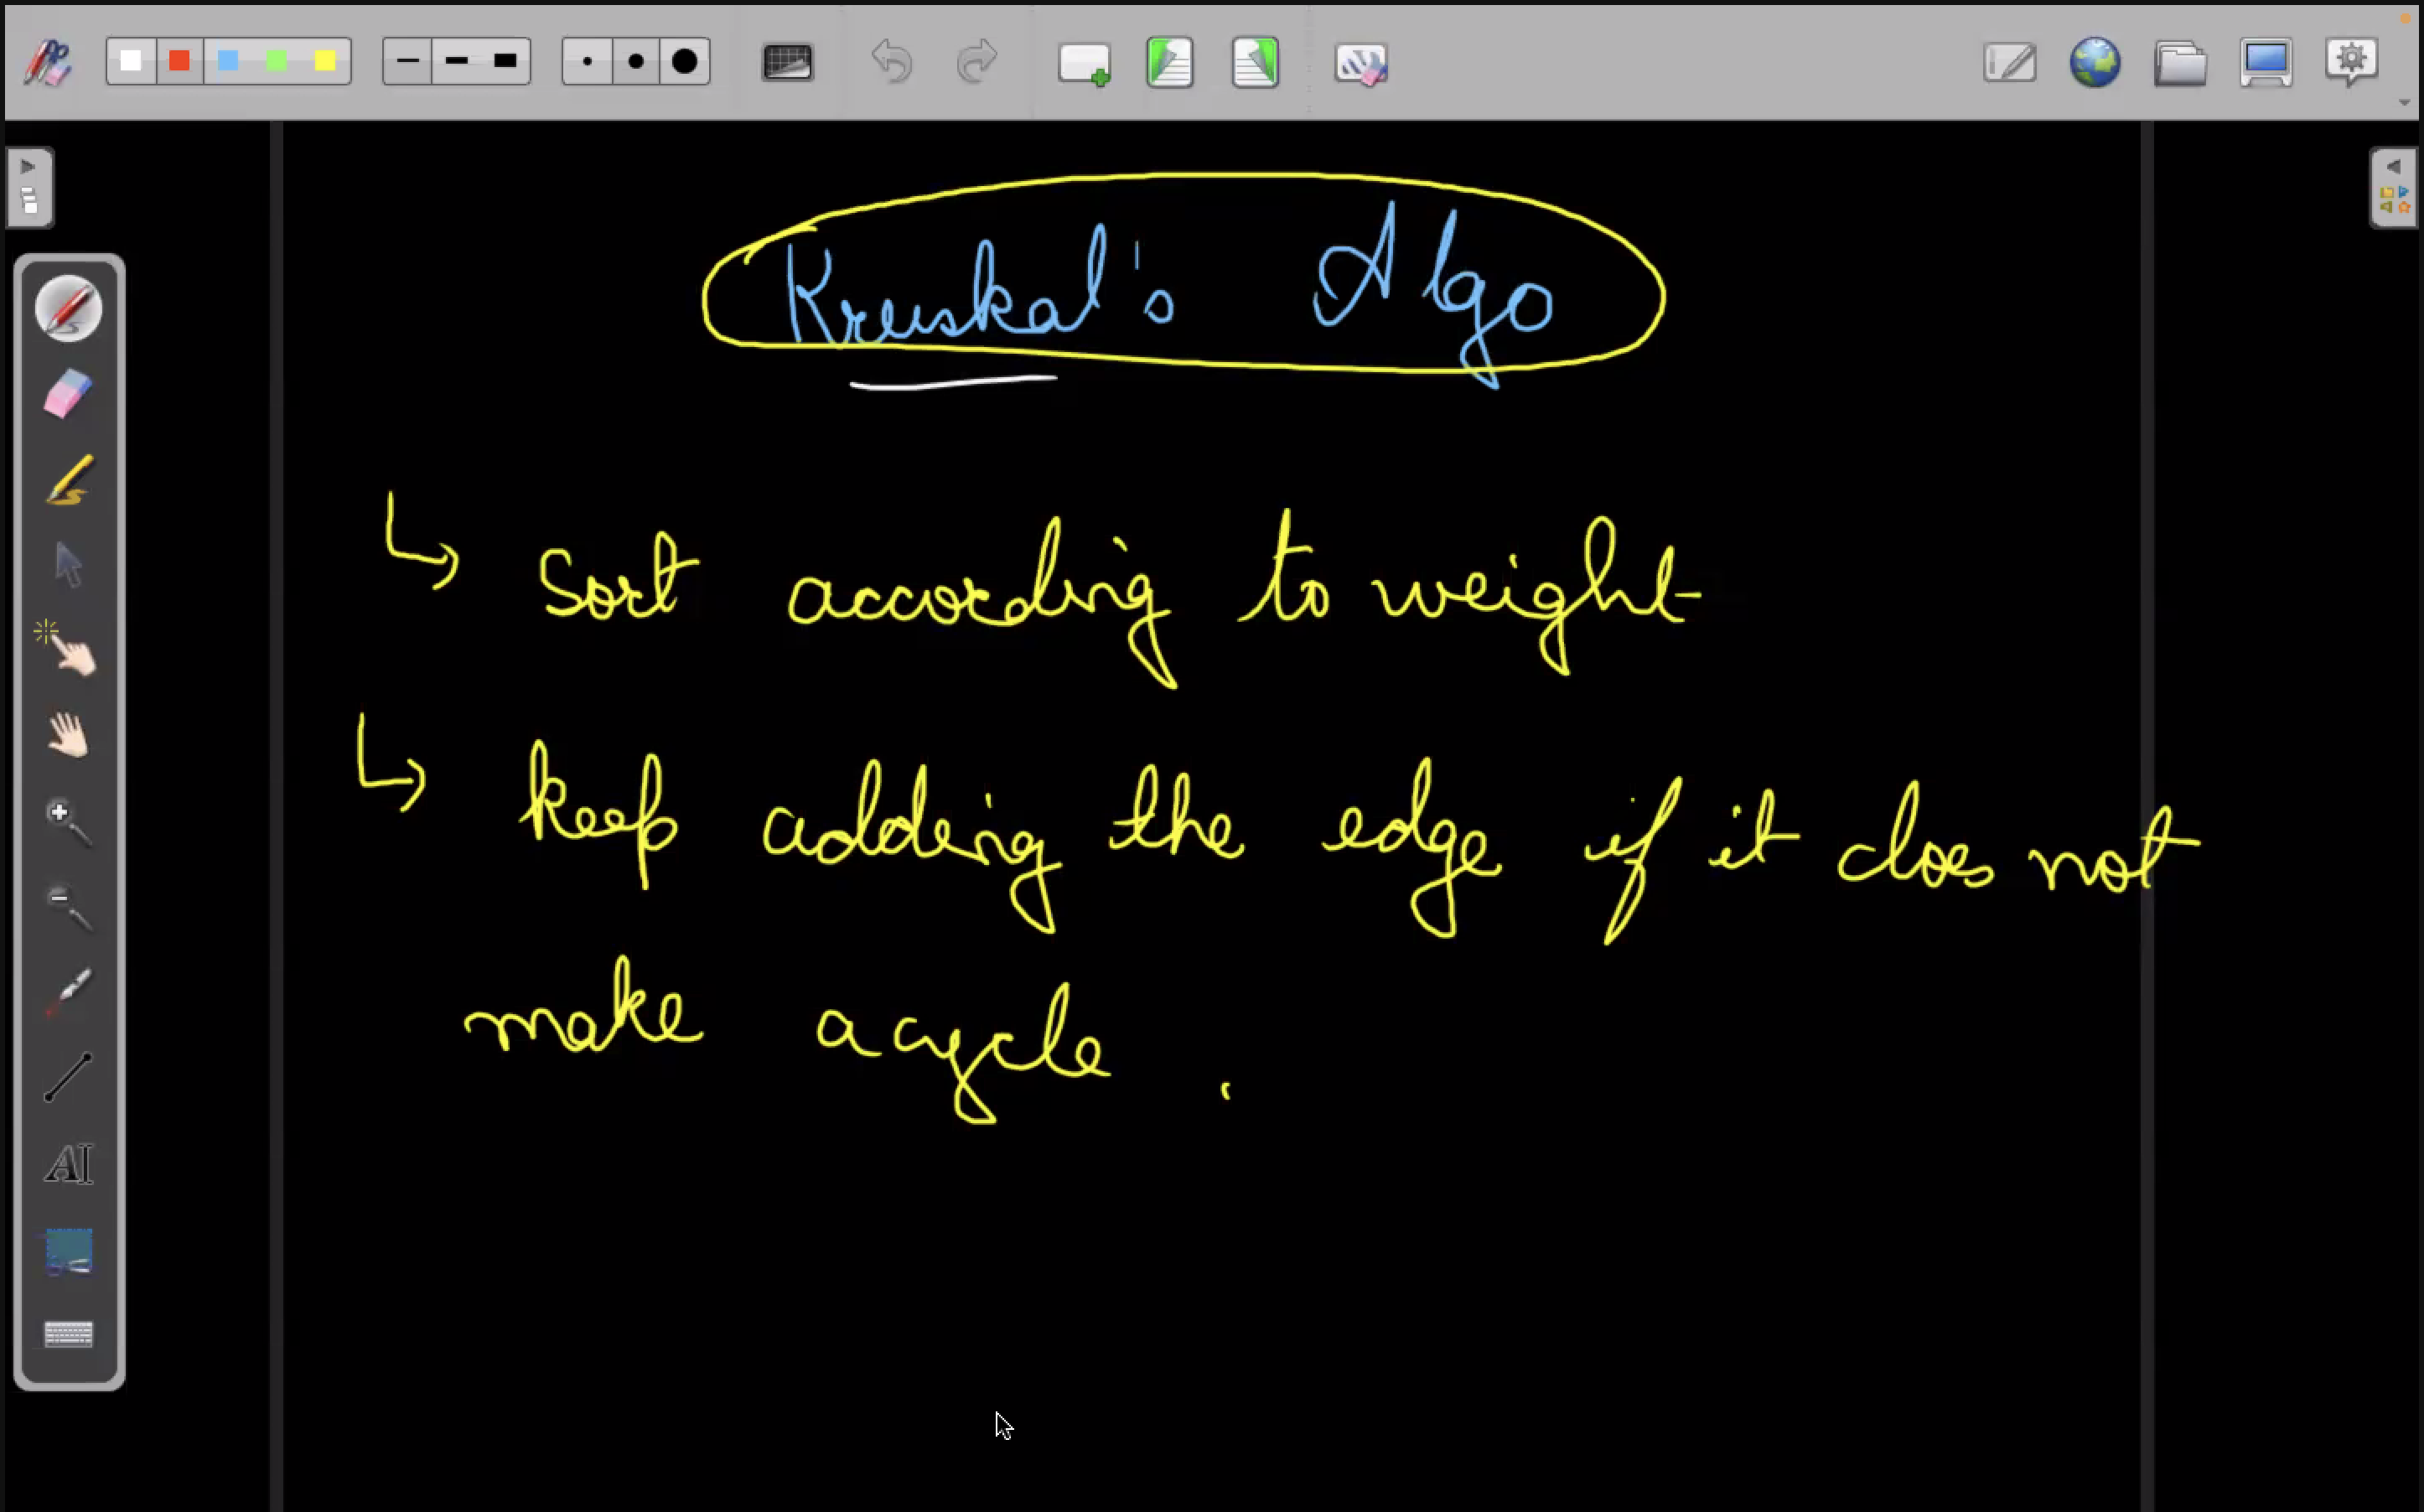 Kruskal's Algo
↳ Sort according to weight
↳ keep adding the edge if it does not
make a cycle .